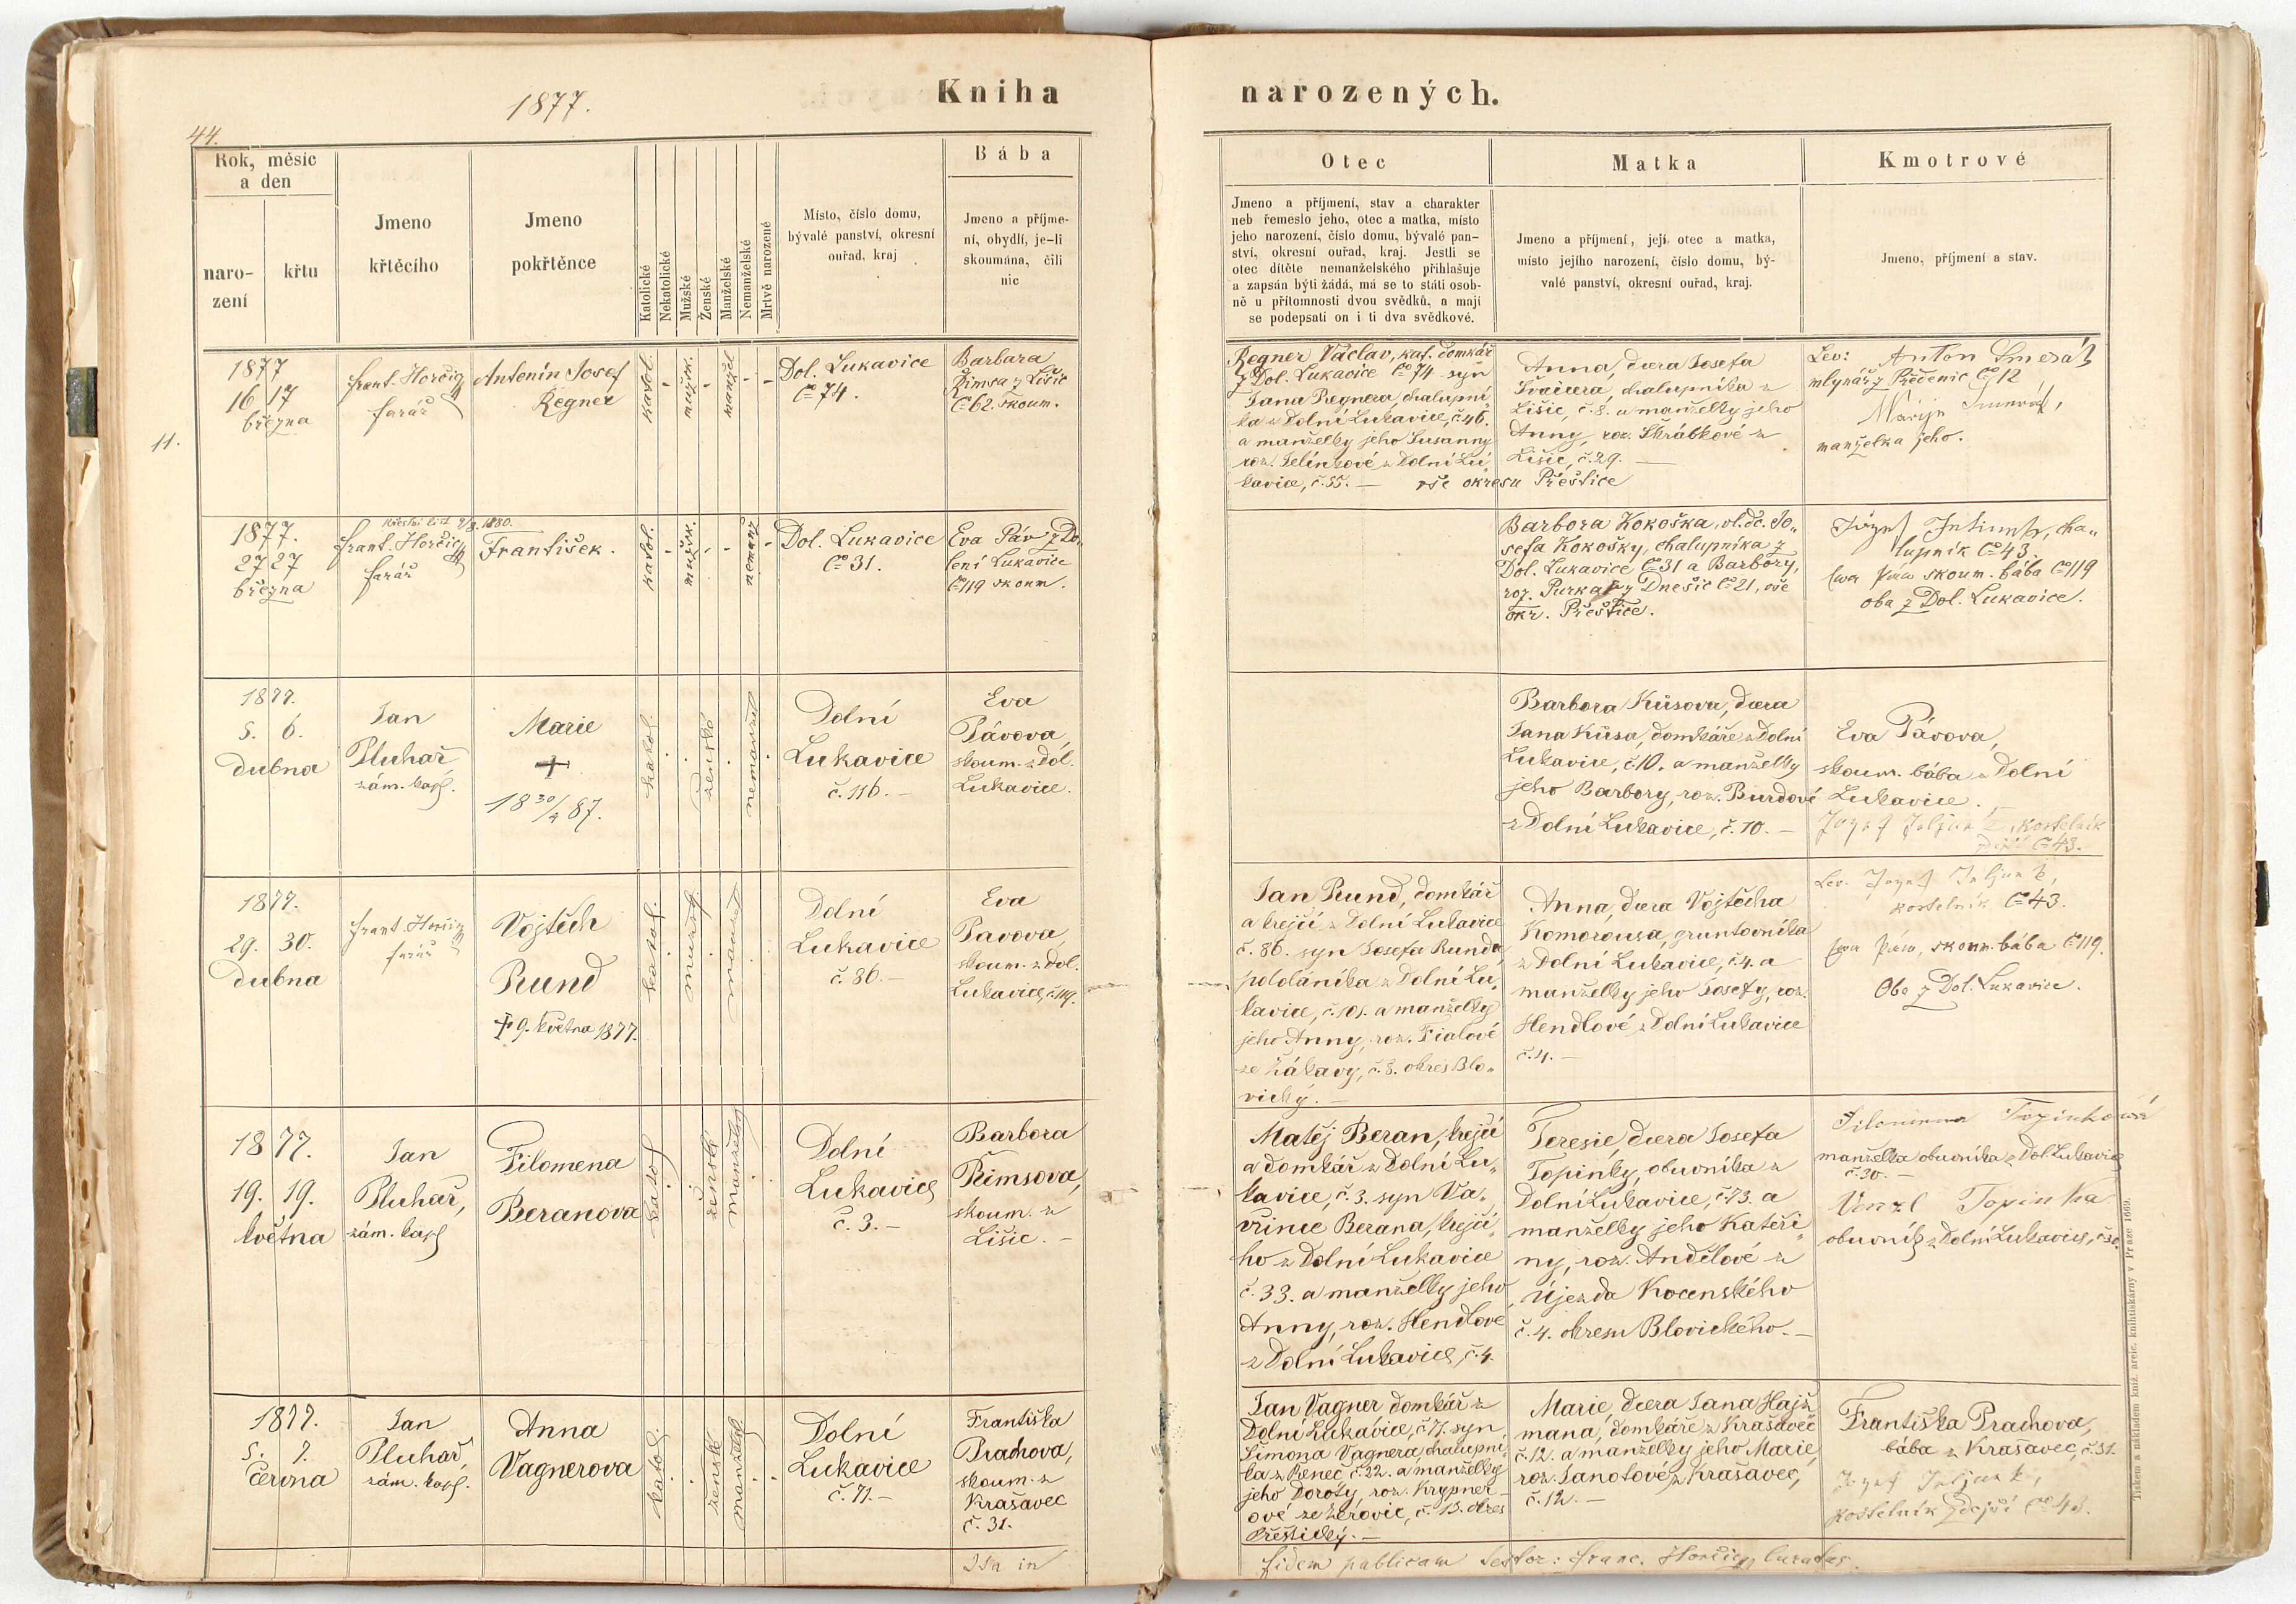 1877.
Kniha narozených.
44.
Rok, měsíc
a den
naro-
zení
křtu
Jmeno
křtěcího
Jmeno
pokřtěnce
Katolické
Nekatolické
Mužské
Ženské
Manželské
Nemanželské
Mrtvě narozené
Místo, číslo domu,
bývalé panství, okresní
ouřad, kraj
Bába
Jmeno a příjme-
ní, obydlí, je-li
skoumána, čili
nic
Otec
Jmeno a příjmení, stav a charakter
neb řemeslo jeho, otec a matka, místo
jeho narození, číslo domu, bývalé pan-
ství, okresní ouřad, kraj. Jestli se
otec dítěte nemanželského přihlašuje
a zapsán býti žádá, má se to státi osob-
ně u přítomnosti dvou svědků, a mají
se podepsati on i ti dva svědkové.
Matka
Jmeno a příjmení, její otec a matka,
místo jejího narození, číslo domu, bý-
valé panství, okresní ouřad, kraj.
Kmotrové
Jmeno, příjmení a stav.
11.
1877
16 17
března
frant. Horčig
farář
Antonín Josef
Regner
katol.
mužsk.
manžel
Dol. Lukavice
Co 74.
Barbara
Řimsa z Lišic
Č 62. skoum.
Regner Václav, kat. domkář
z Dol. Lukavice Co 74 syn
Jana Regnera, chalupní-
ka z Dolní Lukavice, č. 46.
a manželky jeho Susanny
roz. Jelínkové z Dolní Lu-
kavice, č. 55. — vše okresu Přeštice
Anna, dcera Josefa
Švaicera, chalupníka z
Lišic, č. 8. a manželky jeho
Anny, roz. Škrábkové z
Lišic, č. 29. —
Lev: Anton Smesál
mlynář z Předenic Co 12
Marija
manželka jeho.
1877.
27 27
března
Křestní list 9/8. 1880.
frant. Horčig
farář
František.
katol.
mužsk.
nemanž
Dol. Lukavice
Co 31.
Eva Páv z Do-
lení Lukavice
Co 119 skoum.
Barbora Kokoška, vl. dc. Jo-
sefa Kokošky, chalupníka z
Dol. Lukavice Co 31 a Barbory,
roz. Purkar z Dnešic Co 21, vše
okr. Přeštice.
cha-
lupník Co 43.
Eva Páva skoum. bába Co 119
oba z Dol. Lukavice.
1877.
5. 6.
dubna
Jan
Pluhař,
zám. kapl.
Marie
+
18 30/4 87.
katol.
ženské
nemanžel
Dolní
Lukavice
č. 116. —
Eva
Pávova,
skoum. z Dol.
Lukavice.
Barbora Kůsova, dcera
Jana Kůsa, domkáře z Dolní
Lukavice, č. 10. a manželky
jeho Barbory, roz. Burdové
z Dolní Lukavice, č. 10. —
Eva Pávova,
skoum. bába z Dolní
Lukavice. —
kostelník
Co 43.
1877.
29. 30.
dubna
frant. Horčig
farář
Vojtěch
Rund
+ 9. května 1877.
katol.
mužsk.
manžel
Dolní
Lukavice
č. 86. —
Eva
Pavova,
skoum. z Dol.
Lukavice, č. 119.
Jan Rund, domkář
a krejčí z Dolní Lukavice
č. 86. syn Josefa Runda,
pololáníka z Dolní Lu-
kavice, č. 101. a manželky
jeho Anny, roz. Fialové
ze Žákavy, č. 8. okres Blo-
vický. —
Anna, dcera Vojtěcha
Komorousa, gruntovníka
z Dolní Lukavice, č. 4. a
manželky jeho Josefy, roz.
Hendlové z Dolní Lukavice
č. 4. —
Lev.
kostelník Co 43.
Eva Páva, skoum. bába Co 119.
Oba z Dol. Lukavice.
1877.
19. 19.
května
Jan
Pluhař,
zám. kapl
Filomena
Beranova
katol
ženské
manželky
Dolní
Lukavice
č. 3. —
Barbora
Řimsova,
skoum. z
Lišic. —
Matěj Beran, krejčí
a domkář z Dolní Lu-
kavice, č. 3. syn Va-
vřince Berana, krejčí-
ho z Dolní Lukavice
č. 33. a manželky jeho
Anny, roz. Hendlové
z Dolní Lukavice, č. 4.
Teresie, dcera Josefa
Topinky, obuvníka z
Dolní Lukavice, č. 73. a
manželky jeho Kateři-
ny, roz. Andělové z
Újezda Kocenského
č. 4. okresu Blovického. —
Filomena Topinková
manželka obuvníka z Dol. Lukavice
č. 30. —
Venzl Topinka
obuvník z Dolní Lukavice, č. 30.
1877.
5. 7.
června
Jan
Pluhař,
zám. kapl.
Anna
Vagnerova
katol
ženské
manžel
Dolní
Lukavice
č. 71. —
Františka
Prachova,
skoum. z
Krašavec
č. 31.
Jan Vagner domkář z
Dolní Lukavice, č. 71. syn
Šimona Vagnera, chalupní-
ka z Renec, č. 22. a manželky
jeho Doroty, roz. Krypner-
ové ze Žerovic, č. 13. okres
Přeštický. —
Marie dcera Jana Hajž-
mana, domkáře z Krašavec
č. 12. a manželky jeho Marie,
roz. Janotové z Krašavec,
č. 12. —
Františka Prachova,
bába z Krašavec, č. 31.
kostelník zdejší Co 43.
Ita in fidem publicam testor: franc. Horčig, curatus.
Tiskem a nákladem kníž. arcib. knihtiskárny v Praze 1869.